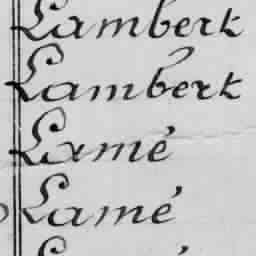 Lambert
Lambert
Lamé
Lamé